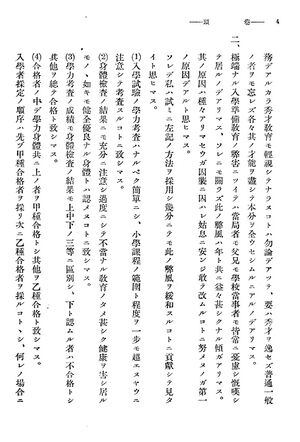 4 ―巻　頭―
務デアルカラ秀才教育モ輕視シテナラヌコトハ勿論デアツテ、要ハ秀才ヲ逸セズ普通一般
ノ者ヲモ忘レズ各々其才能ヲ盡シテ本分ヲ全ウセシムルニアルノデアリマス。
二、極端ナル入學準備教育ノ弊害ニツイテハ當局者モ父兄モ學校當事者モ皆常ニ憂慮シ慨嘆シ
ツヽアルノデアリマス、ソレニモ關ラズ此ノ弊風ハ年ト共ニ益々甚シクナル傾ガアリマス。
其ノ原因ハ種々アリマセウガ因襲ニ囚ハレ姑息ニ安ジ敢テ改ムルコトニ努メヌノガ第一
ノ原因デアルト思ヒマス。
ソレデ私ハ試ミニ左記ノ方法ヲ採用シ幾分ニテモ此ノ弊風ヲ緩和スルコトニ貢獻シテ見タ
イト思ヒマス。
(1)入學試驗ノ學力考査ハナルベク簡單ニシ、小學課程ノ範圍ト程度ヲ一歩モ超エヌヤウ
注意シテ考査スルコトニ致シマス。
(2)身體檢査ノ結果ニモ充分ニ注意シ過度ニシテ不當ナル教育ノタメ甚シク健康ヲ害シ居ル
モノ、如キハ健全優良ナル身體トハ認ヌコトニ致シマス。
(3)學力考査ノ成績モ身體檢査ノ結果モ上中下ノ三等ニ區別シ、下ト認ムル者ハ不合格トシ
其他ヲ總テ合格ト致シマス。
(4)合格者ノ中デ學力身體共ニ上ノ者ヲ甲種合格トシ其他ヲ乙種合格ト致シマス。
入學者採定ノ順序ハ先ヅ甲種合格者ヲ採リ次ニ乙種合格者ヲ採ルコトヽシ、何レノ場合ニ